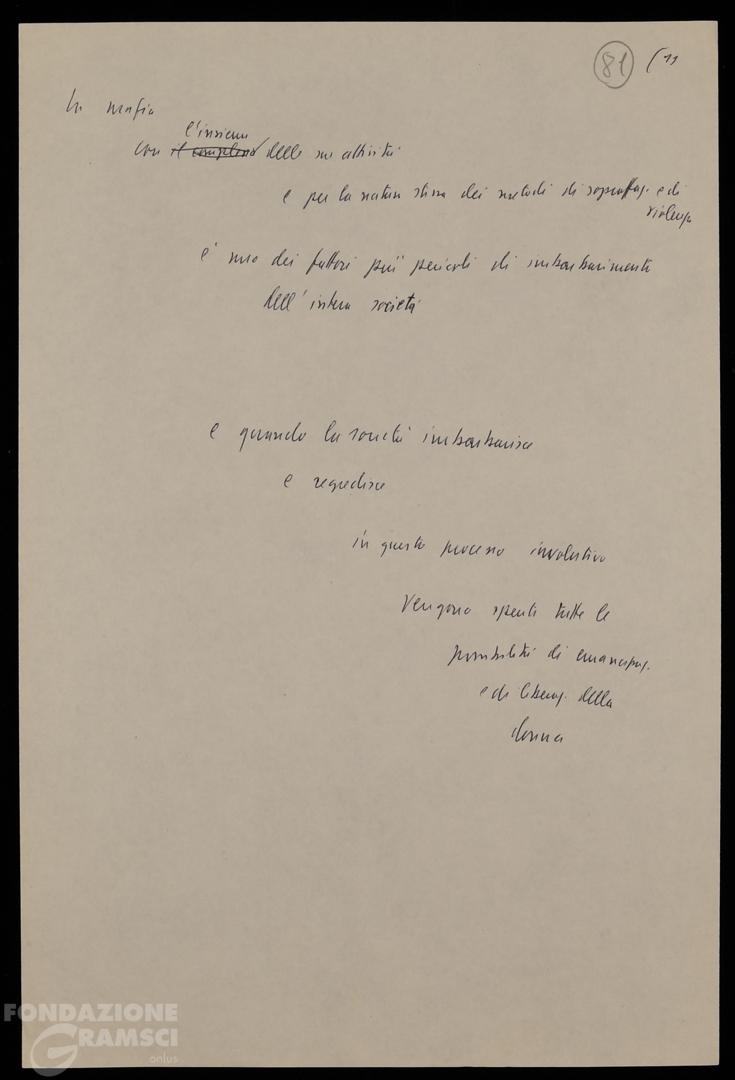 81 (11
La mafia
l'insieme
con il complesso delle sue attività
e per la natura stessa dei metodi di sopraffaz. e di
violenza
è uno dei fattori più pericolosi di imbarbarimento
dell'intera società
e quando la società imbarbarisce
e regredisce
in questo processo involutivo
vengono spente tutte le
possibilità di emancipaz.
e di liberaz. della
donna
FONDAZIONE
GRAMSCI
onlus